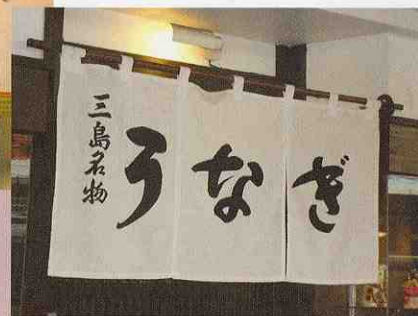 三島名物
うなぎ